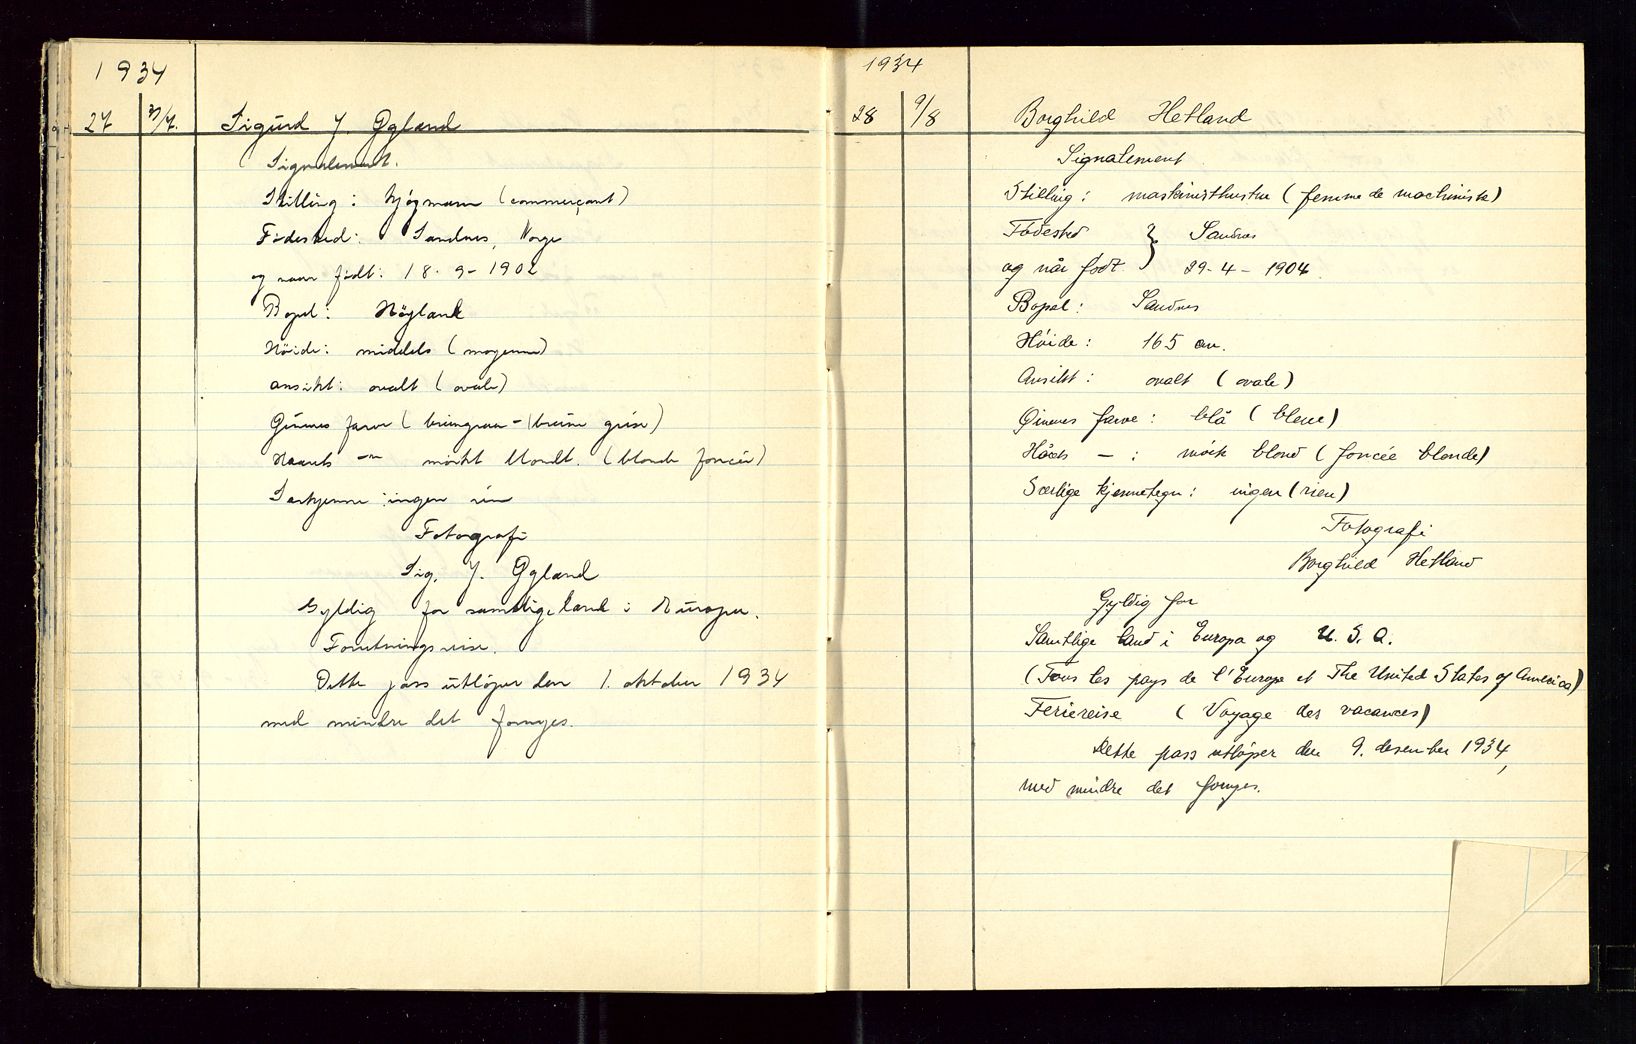 1934
27 31/7. Sigurd J Øgland
Signalement.
Stilling: kjøpmann (commerçant)
Fødested: Sandnes, Norge
og naar født: 18-9-1902
Bopel: Høyland
Høide: middels (moyenne)
ansikt: ovalt (ovale)
Øinnes farve (brungraa - brune grise)
Haarets -"- mørkt blondt. (blonde foncée)
Særkjenne: ingen
Fotografi
Sig. J. Øgland
Gyldig for samtlige land i Europa.
Forretningsreise.
Dette pass utløper den 1. oktober 1934
med mindre det fornyes.
1934
28 9/8 Borghild Hetland
Signalement
Stilling: maskinisthustru (femme de machiniste)
Fødested } Sandnes
og når født } 29-4-1904
Bopel: Sandnes
Høide: 165 cm.
Ansikt: ovalt (ovale)
Øinenes farve: blå (bleue)
Hårets - : mørk blond (foncée blonde)
Særlige kjennetegn: ingen (rien)
Fotografi
Borghild Hetland
Gyldig for
Samtlige land i Europa og U.S.A.
(Tous les pays de l'Europe et The United States of America)
Feriereise (Voyage des vacances)
Dette pass utløper den 9. desember 1934,
med mindre det fornyes.